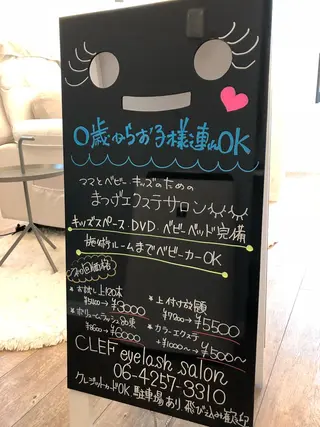 0歳からお子様連れOK
ママとベビー・キッズのための
まつげエクステサロン
キッズスペース・DVD・ベビーベッド完備
施術ルームまでベビーカーOK
初回価格
*お試し上120本
¥5100→¥3000
*ボリュームラッシュ80束
¥8600→¥6000
*上付け放題
¥7700→¥5500
*カラーエクステ
+¥1000~→¥500~
CLEF eyelash salon
06-4257-3310
クレジットカードOK 駐車場あり 飛び込み歓迎